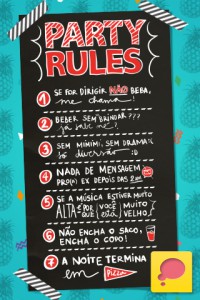 PARTY
RULES
1 SE FOR DIRIGIR NÃO BEBA,
me chama!
2 BEBER SEM BRINDAR???
já sabe né?
3 SEM MIMIMI, SEM DRAMA
só diversão :D
4 NADA DE MENSAGEM
PRO(A) EX DEPOIS DAS 2:00
5 SE A MÚSICA ESTIVER MUITO
ALTA É POR QUE VOCÊ ESTÁ MUITO VELHO
6 NÃO ENCHA O SACO,
ENCHA O COPO!
7 A NOITE TERMINA
em PIZZA